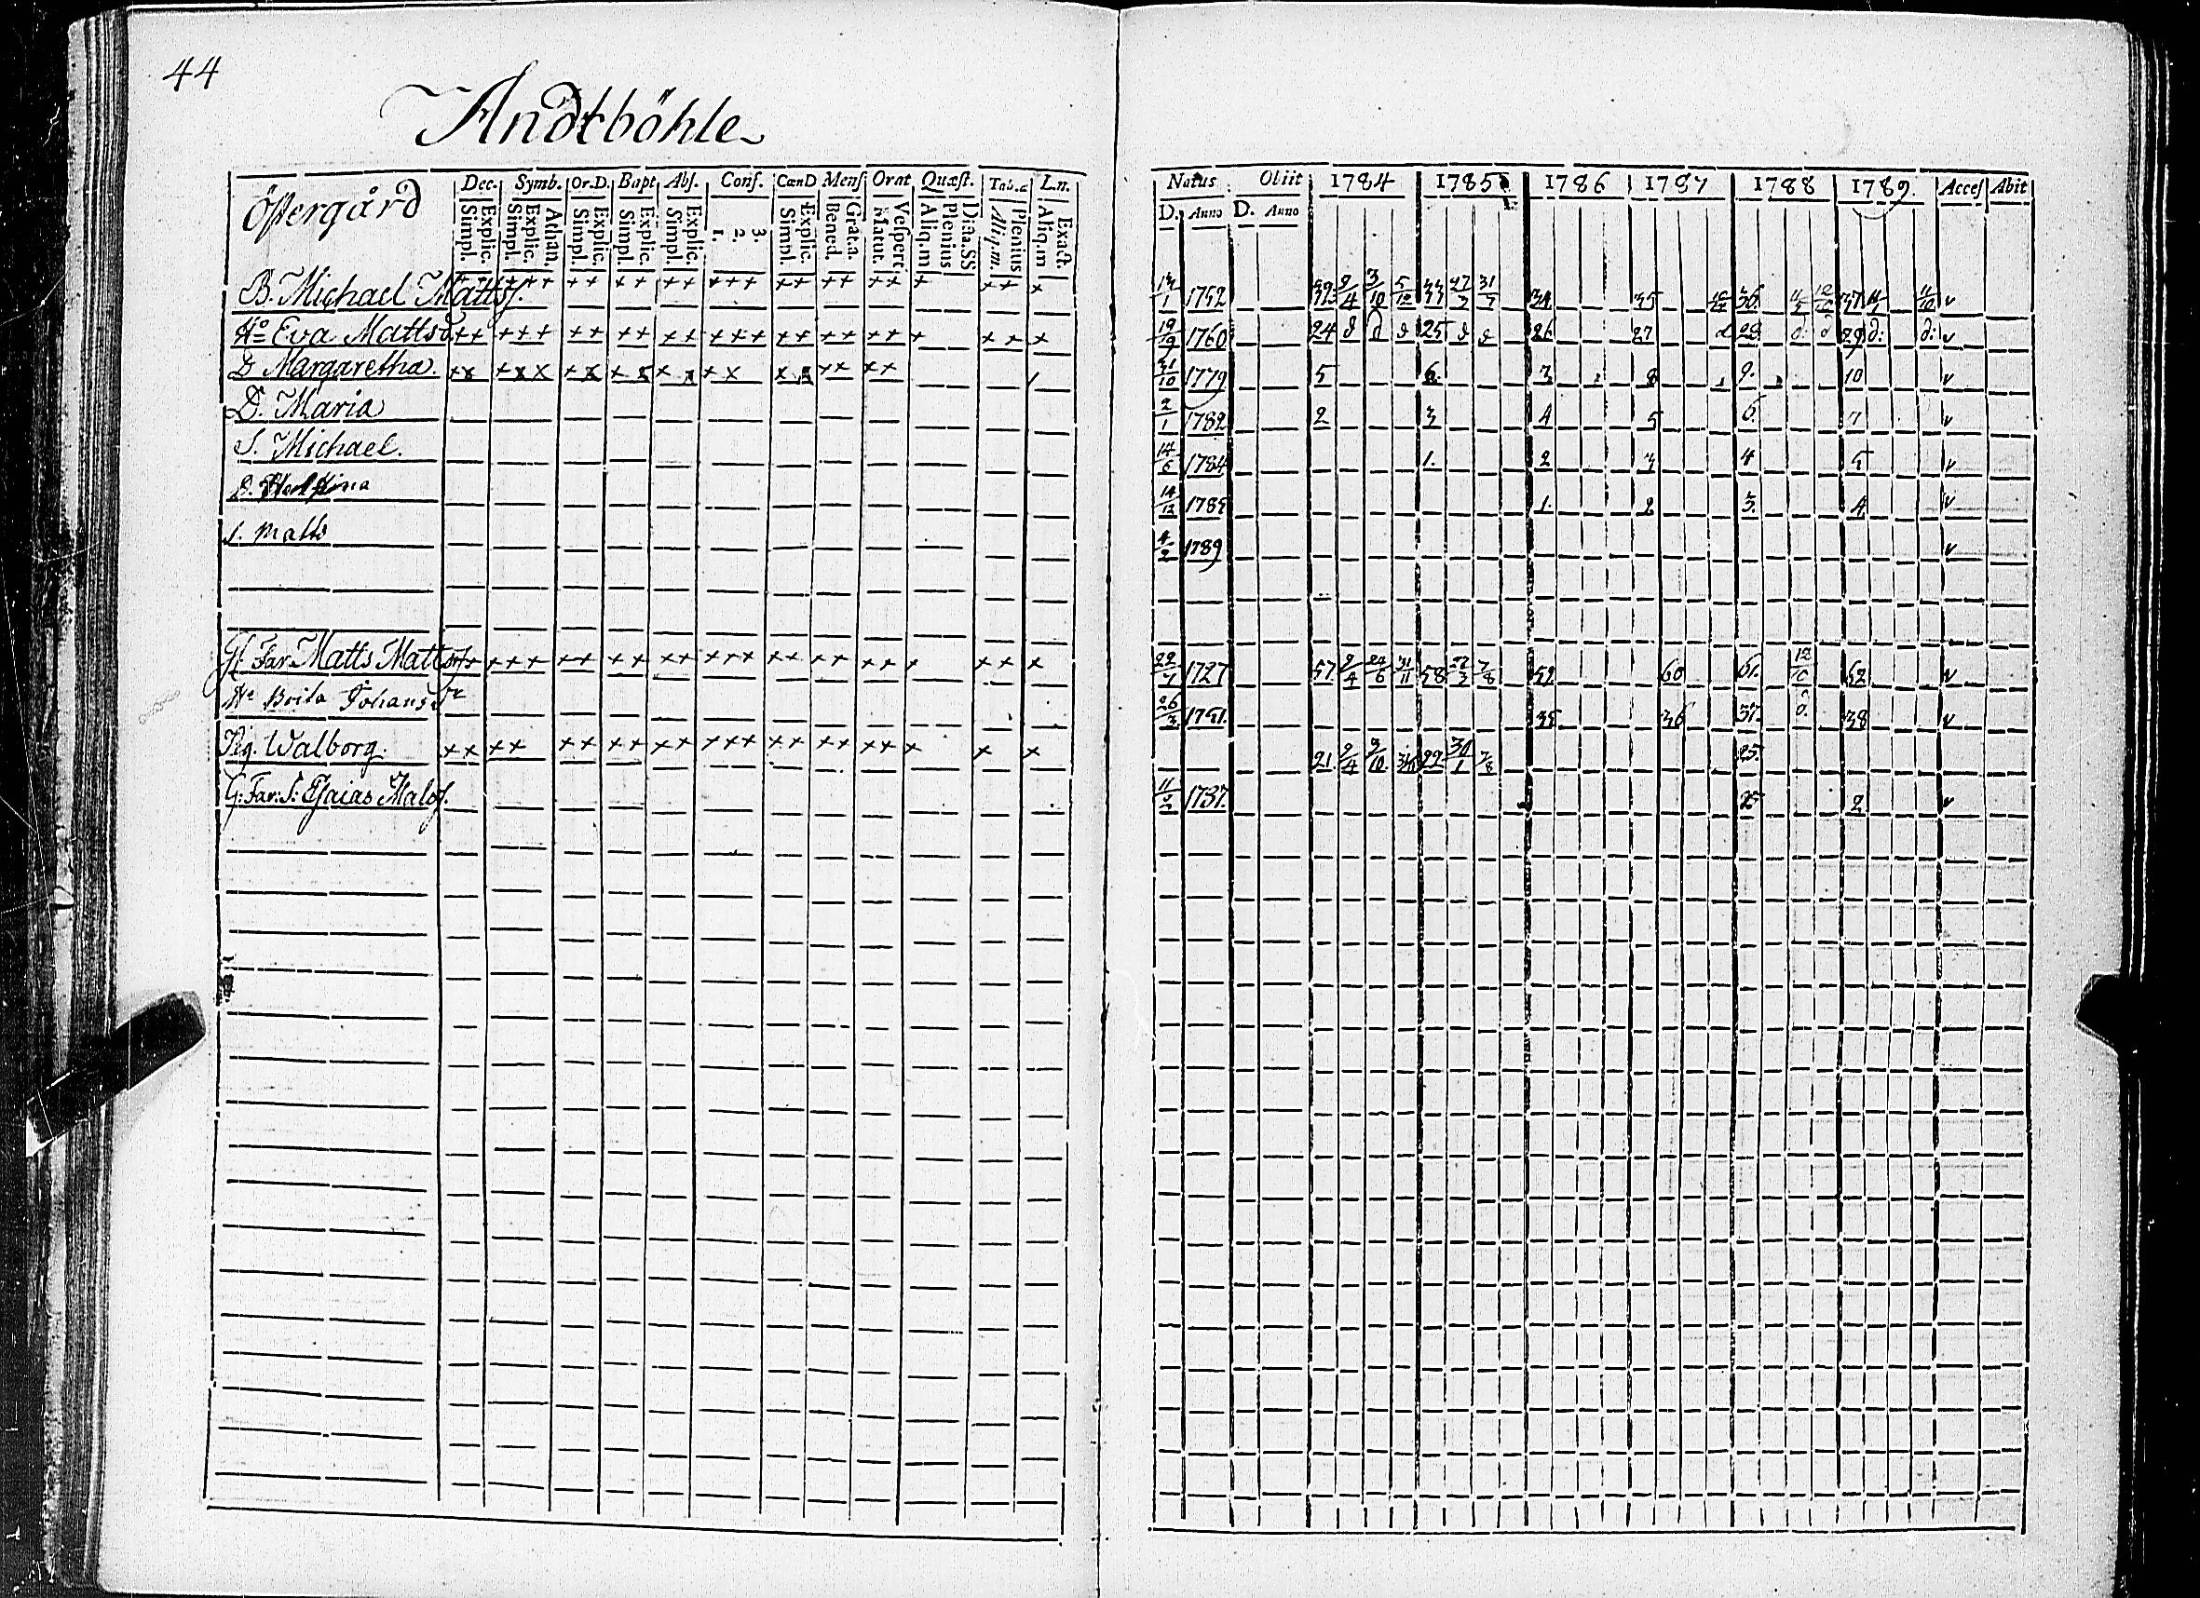 44
Andtböhle
Östergård
Dec. Symb. Or.D. Bapt Abs. Conf. CœnD Mens Orat Quæst. Tab.æ L.n.
Simpl. Explic. Simpl. Explic. Athan. Simpl. Explic. Simpl. Explic. Simpl. Explic. 1. 2. 3. Simpl. Explic. Bened. Grat.a. Matut. Vespert. Aliq.m Plenius Aliq.m. Plenius Aliq.m Exact.
Natus Obiit 1784 1785 1786 1787 1788 1789. Acces Abit
D. Anno D. Anno
B. Michael Matts. ++ +++ ++ ++ ++ +++ ++ ++ ++ + ++ + 1/1752 9/4 3/10 5/12 33 27/3 34 35 36 37 v
H:o Eva Mattsd. ++ +++ ++ ++ ++ +++ ++ ++ ++ + ++ + 19/9 1760 24 d d d 25 d d 26 27 d 28 d. d 29 d: d: v
D Margaretha. 31/10 1779 5 6. 7 8 9. 10 v
D. Maria 2/1 1782 2 3 4 5 6. 7 v
S. Michael. 1784 1. 2 3 4 5 v
D. 14/12 1785 1. 2 3. 4 v
S. Matts 4/2 1789 v
Gl. Far Matts Matts. ++ +++ ++ ++ ++ +++ ++ ++ ++ + ++ + 1727 57 9/4 24/6 31/11 58 7/8 59 60 61. 12/10 62 v
H:o Brita Johansdr 26/3 1751. 35 36 37. d. 38 v
Pig. Walborg. ++ ++ ++ ++ ++ +++ ++ ++ ++ + + + 21. 9/4 9/10 22 30/1 7/8 25.
G: Far: S: Esaias Mats. 1737. 25 2 v